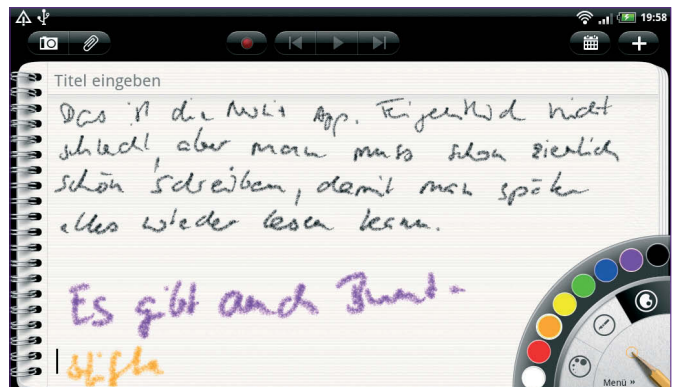 19:58
Titel eingeben
Das ist die Notiz App. Eigentlich nicht
schlecht, aber man muss schon ziemlich
schön schreiben, damit man später
alles wieder lesen kann.
Es gibt auch Bunt-
stifte
Menü »